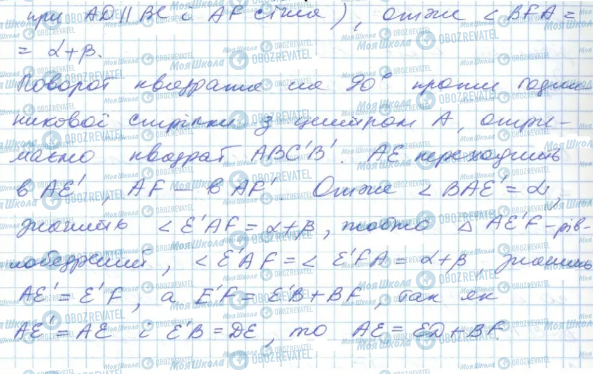 при AD || BC і AF січна), отже ∠BFA =
= α+β.
Поворот квадрата на 90° проти годин-
никової стрілки з центром A, отри-
маємо квадрат ABC'B'. AE переходить
в AE', AF – в AF'. Отже ∠BAE' = α,
значить ∠E'AF = α+β, тобто △ AE'F – рів-
нобедрений, ∠E'AF = ∠E'FA = α+β, значить
AE' = E'F, а E'F = E'B + BF, так як
AE' = AE і E'B = DE, то AE = ED + BF.